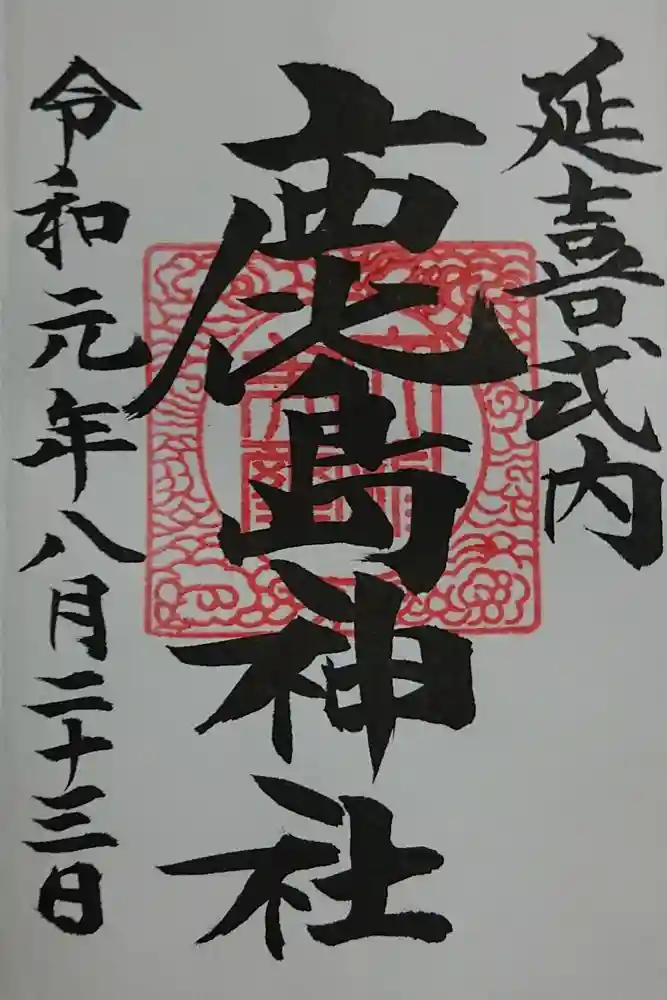 延喜式内
鹿島神社
令和元年八月二十三日